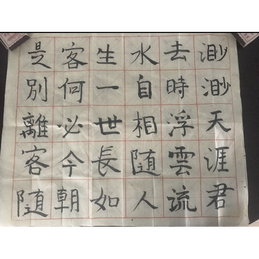 渺渺天涯君
去時浮雲流
水自相随人
生一世長如
客何必今朝
是別離客随